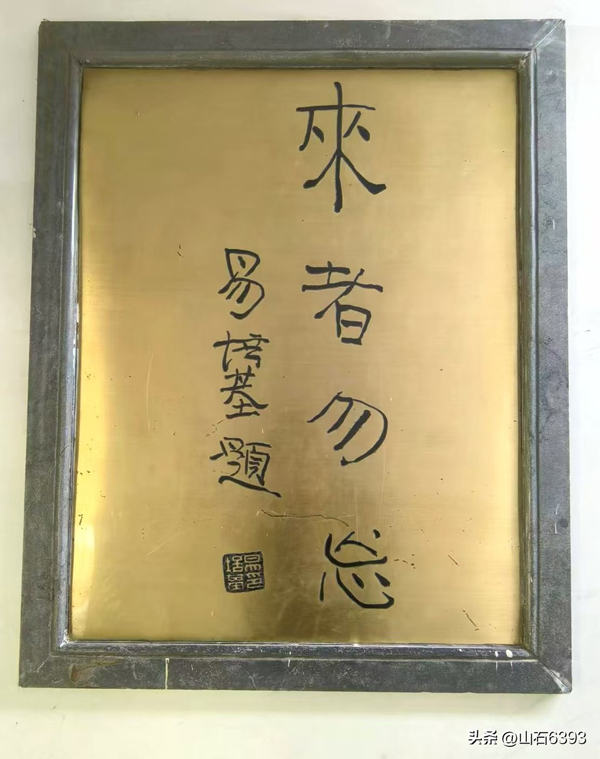 來者勿忘
易培基題
易培基印
头条 @山石6393